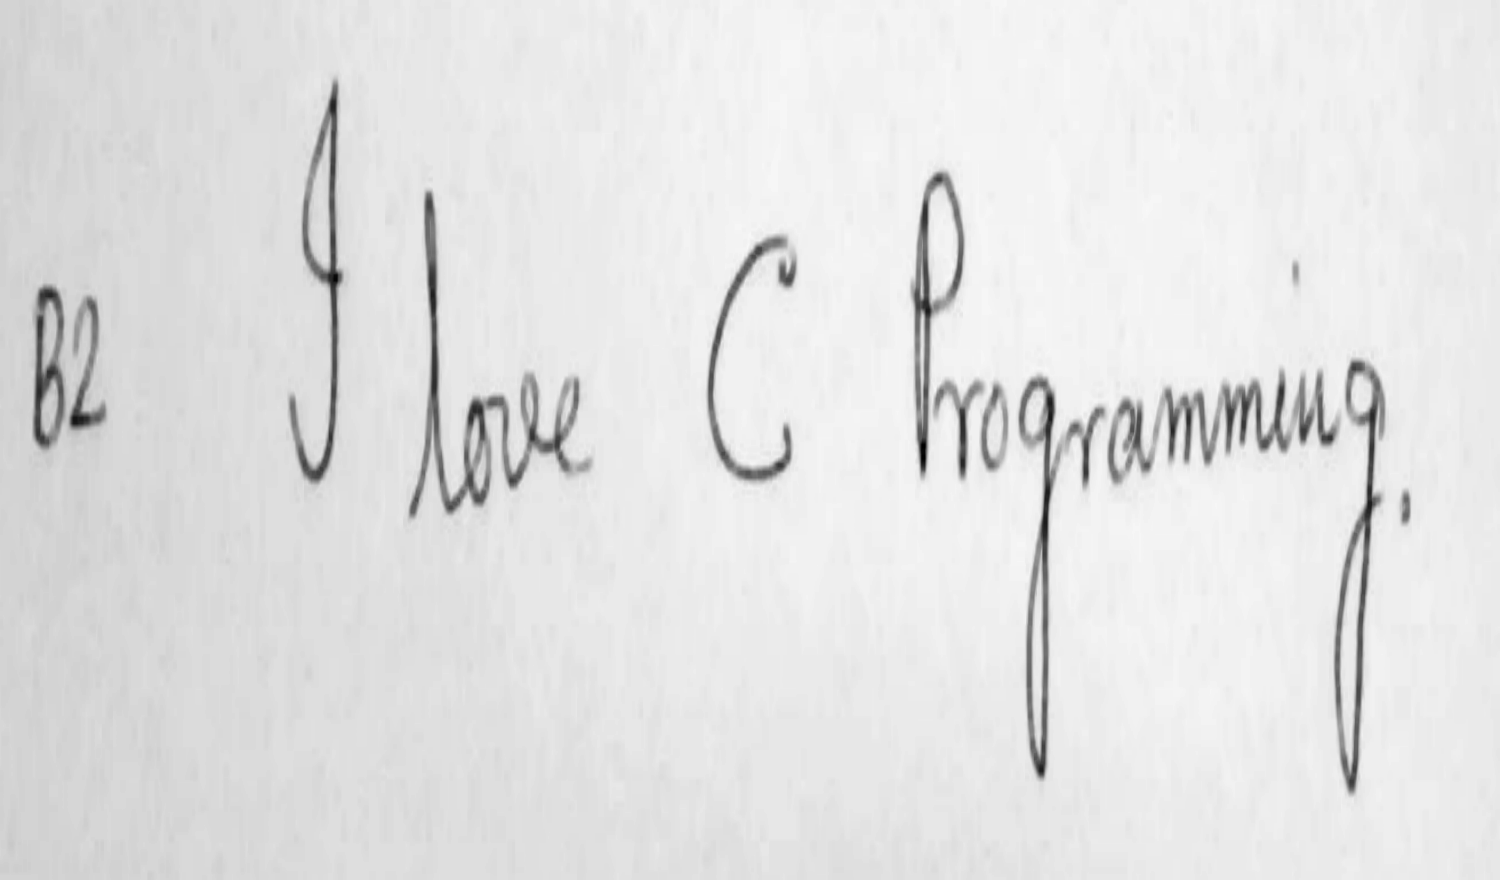 B2 I love C Programming.